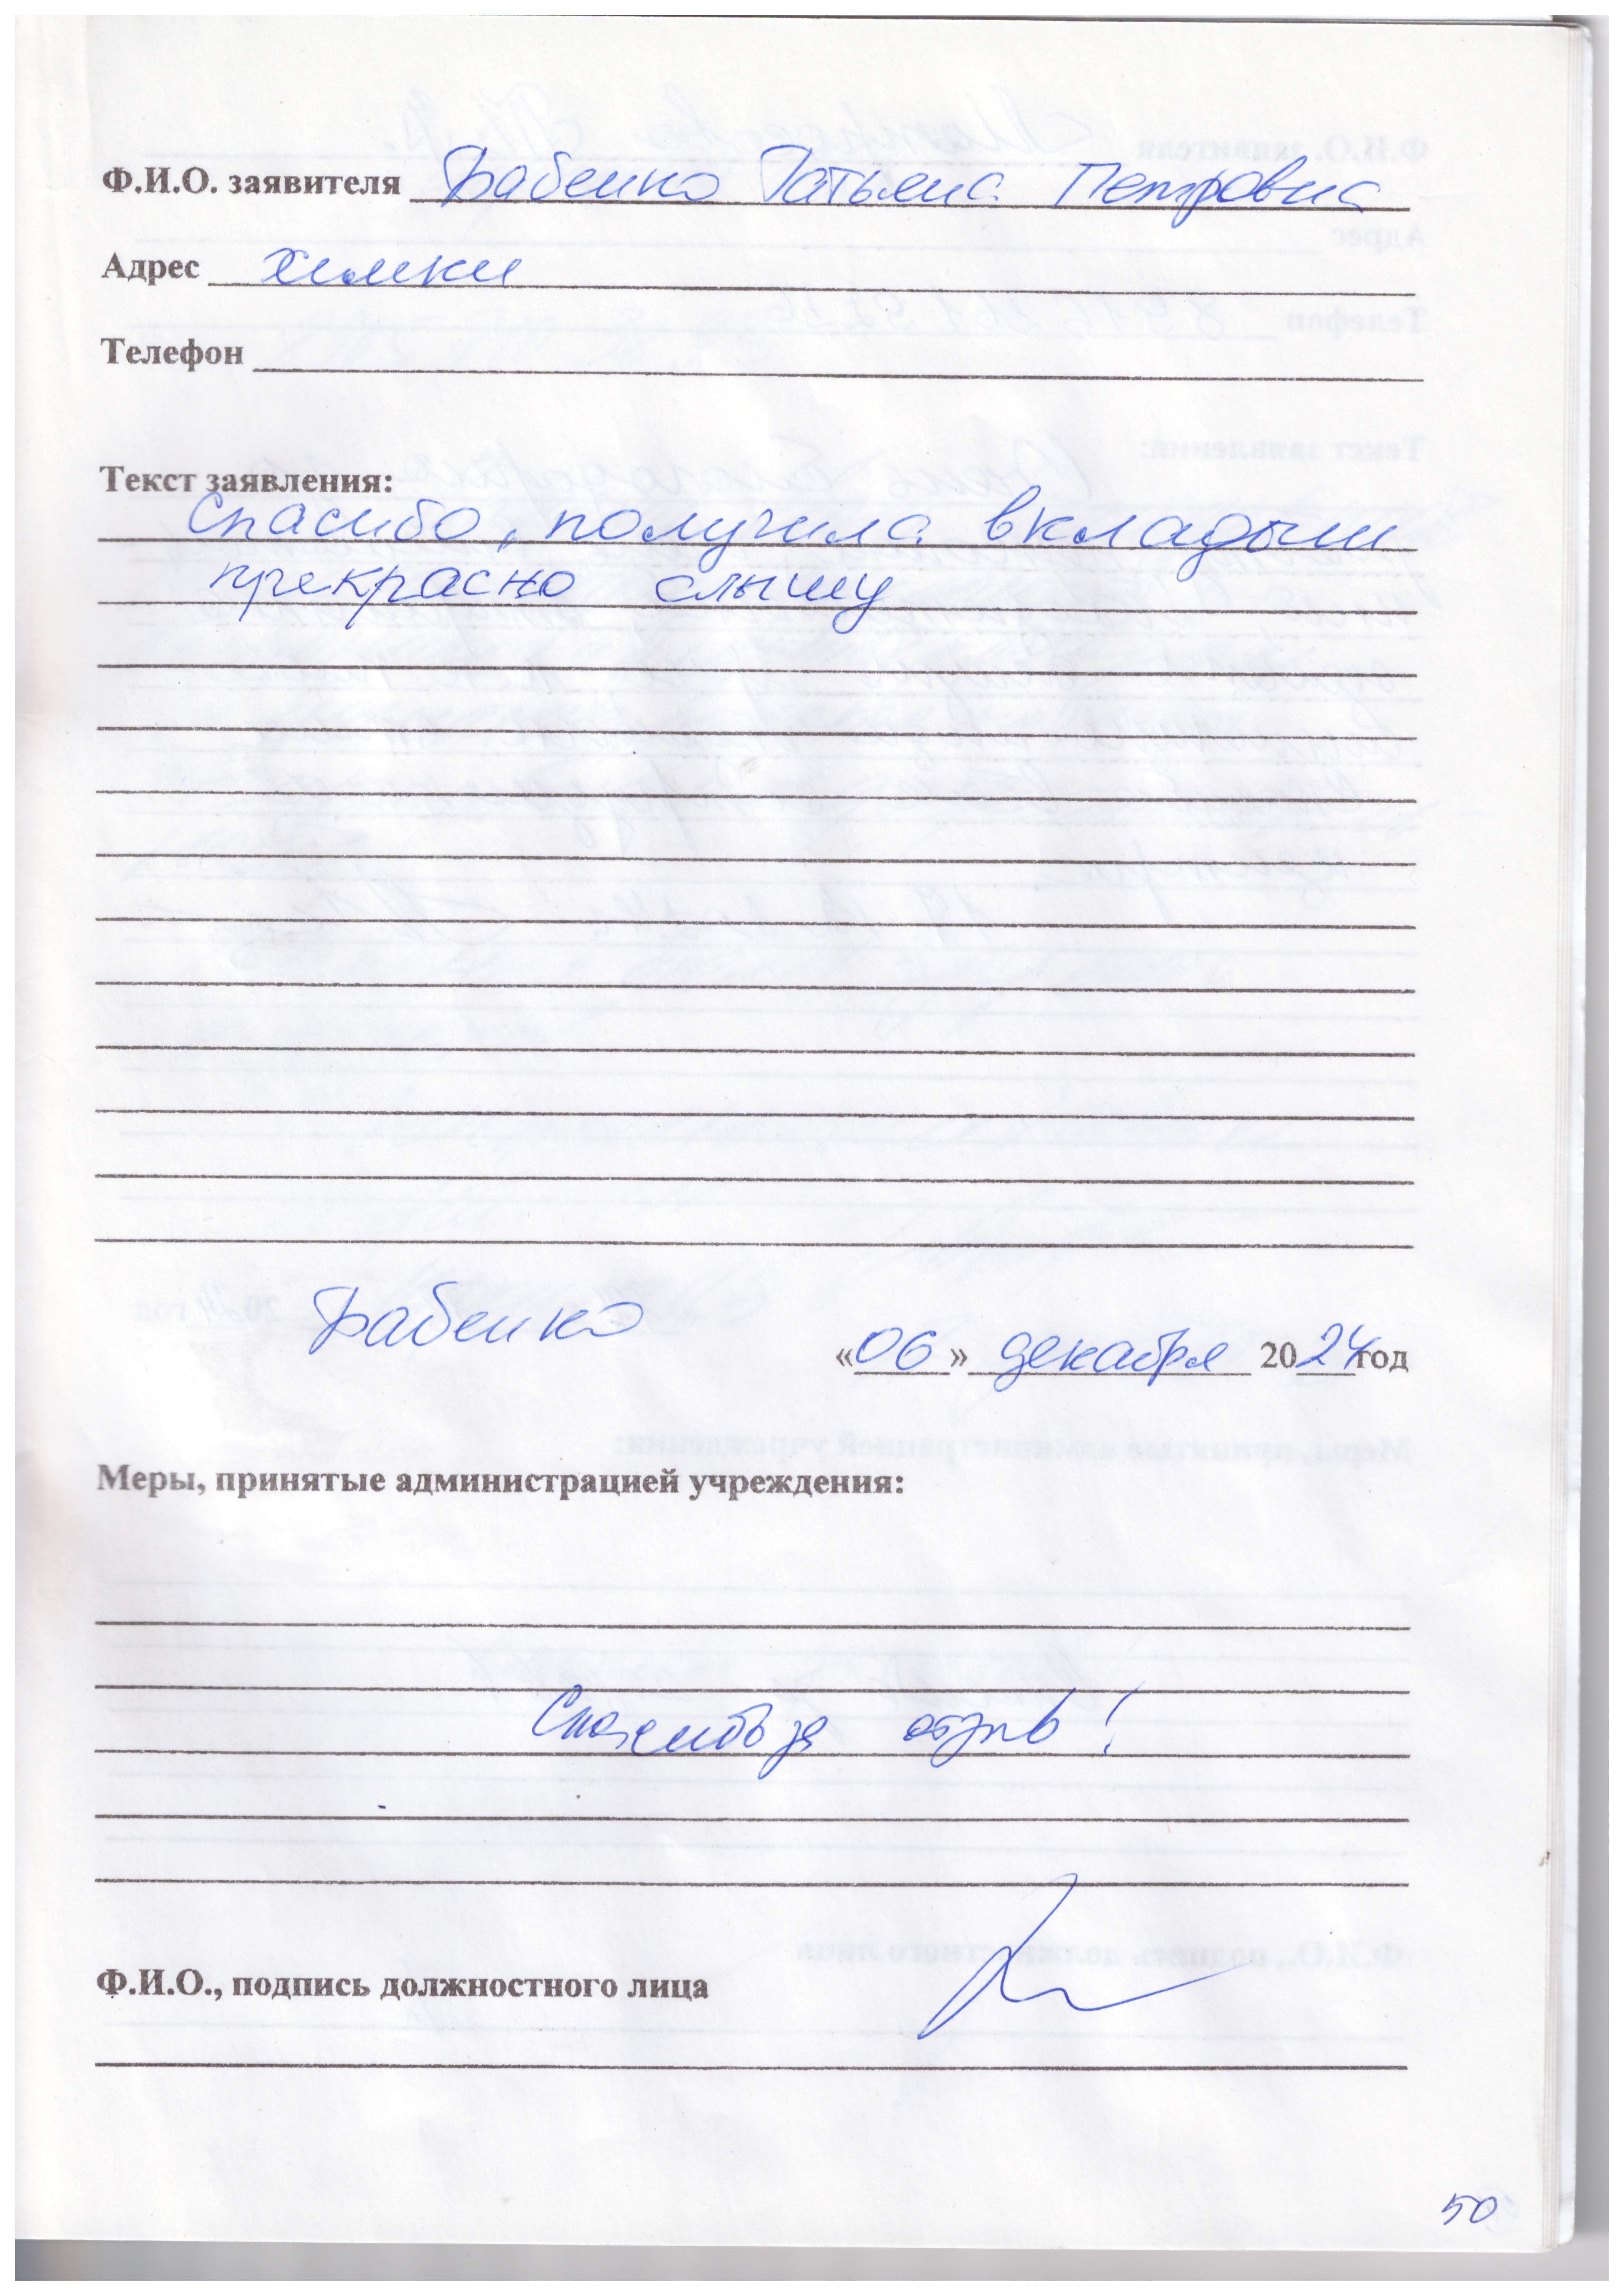 Ф.И.О. заявителя Бабенко Татьяна Петровна
Адрес Химки
Телефон
Текст заявления:
Спасибо, получила вкладыши
прекрасно слышу
Бабенко
«06» декабря 2024 год
Меры, принятые администрацией учреждения:
Спасибо за отзыв!
Ф.И.О., подпись должностного лица
50